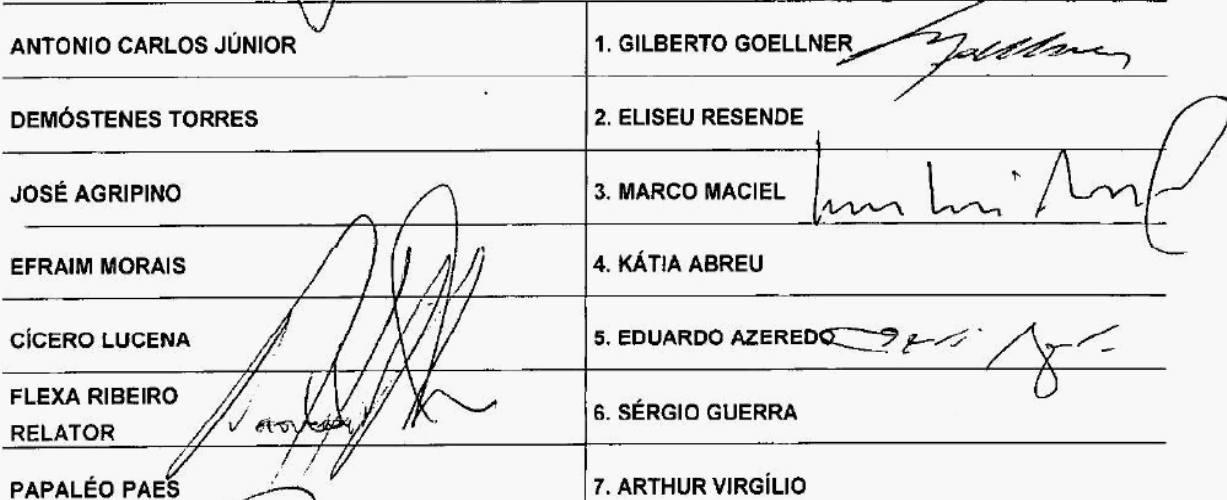 ANTONIO CARLOS JÚNIOR
1. GILBERTO GOELLNER
DEMÓSTENES TORRES
2. ELISEU RESENDE
JOSÉ AGRIPINO
3. MARCO MACIEL
EFRAIM MORAIS
4. KÁTIA ABREU
CÍCERO LUCENA
5. EDUARDO AZEREDO
FLEXA RIBEIRO
RELATOR
6. SÉRGIO GUERRA
PAPALÉO PAES
7. ARTHUR VIRGÍLIO